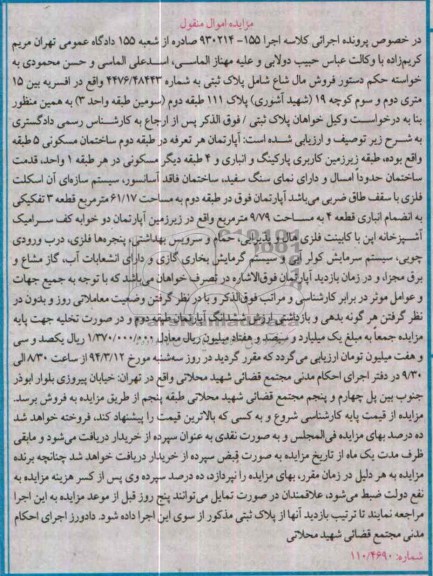 مزایده اموال منقول
در خصوص پرونده اجرائی کلاسه اجرا ۱۵۵- ۹۳۰۲۱۴ صادره از شعبه ۱۵۵ دادگاه عمومی تهران مریم
کریم‌زاده با وکالت عباس حبیب دولابی و علیه مهناز الماسی، اسدعلی الماسی و حسن محمودی به
خواسته حکم دستور فروش مال شاع شامل پلاک ثبتی به شماره ۴۴۷۶/۴۸۴۴۳ واقع در افسریه بین ۱۵
متری دوم و سوم کوچه ۱۹ (شهید آشوری) پلاک ۱۱۱ طبقه دوم (سومین طبقه واحد ۳) به همین منظور
بنا به درخواست وکیل خواهان پلاک ثبتی / فوق الذکر پس از ارجاع به کارشناس رسمی دادگستری
به شرح زیر توصیف و ارزیابی شده است: آپارتمان هر تعرفه در طبقه دوم ساختمان مسکونی ۵ طبقه
واقع بوده، طبقه زیرزمین کاربری پارکینگ و انباری و ۴ طبقه دیگر مسکونی در هر طبقه ۱ واحد، قدمت
ساختمان حدوداً امسال و دارای نمای سنگ سفید، ساختمان فاقد آسانسور، سیستم سازه‌ای آن اسکلت
فلزی با سقف طاق ضربی می‌باشد آپارتمان فوق در طبقه دوم به مساحت ۶۱/۱۷ مترمربع قطعه ۳ تفکیکی
به انضمام انباری قطعه ۴ به مساحت ۹/۷۹ مترمربع واقع در زیرزمین آپارتمان دو خوابه کف سرامیک
آشپزخانه اپن با کابینت فلزی، سالن پذیرایی، حمام و سرویس بهداشتی، پنجره‌ها فلزی، درب ورودی
چوبی، سیستم سرمایش کولر آبی و سیستم گرمایش بخاری گازی و دارای انشعابات آب، گاز مشاع و
برق مجزا، و در زمان بازدید آپارتمان فوق‌الاشاره در تصرف خواهان می‌باشد که با توجه به جمیع جهات
و عوامل موثر در برابر کارشناسی و مراتب فوق‌الذکر و با در نظر گرفتن وضعیت معاملاتی روز و بدون در
نظر گرفتن هر گونه بدهی و بازداشتی ارزش ششدانگ آپارتمان طبقه دوم و در صورت تخلیه جهت پایه
مزایده جمعاً به مبلغ یک میلیارد و سیصد و هفتاد میلیون ریال معادل ۱/۳۷۰/۰۰۰/۰۰۰ ریال یکصد و سی
و هفت میلیون تومان ارزیابی می‌گردد که مقرر گردید در روز سه‌شنبه مورخ ۹۴/۳/۱۲ از ساعت ۸/۳۰ الی
۹/۳۰ در دفتر اجرای احکام مدنی مجتمع قضائی شهید محلاتی واقع در تهران: خیابان پیروزی بلوار ابوذر
جنوب بین پل چهارم و پنجم مجتمع قضائی شهید محلاتی طبقه پنجم از طریق مزایده به فروش برسد.
مزایده از قیمت پایه کارشناسی شروع و به کسی که بالاترین قیمت را پیشنهاد کند، فروخته خواهد شد
ده درصد بهای مزایده فی‌المجلس و به صورت نقدی به عنوان سپرده از خریدار دریافت می‌شود و مابقی
ظرف مدت یک ماه از تاریخ مزایده به صورت قبض سپرده از خریدار دریافت خواهد شد چنانچه برنده
مزایده به هر دلیل در زمان مقرر، بهای مزایده را نپردازد، ده درصد سپرده وی پس از کسر هزینه مزایده به
نفع دولت ضبط می‌شود، علاقمندان در صورت تمایل می‌توانند پنج روز قبل از موعد مزایده به این اجرا
مراجعه نمایند تا ترتیب بازدید آنها از پلاک ثبتی مذکور از سوی این اجرا داده شود. دادورز اجرای احکام
مدنی مجتمع قضائی شهید محلاتی
شماره: ۱۱۰/۴۶۹۰